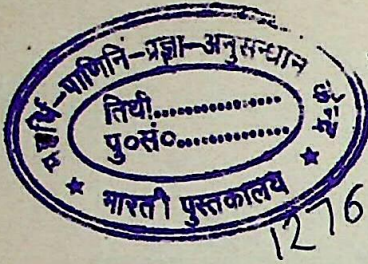 महर्षि-पाणिनि-प्रज्ञा-अनुसन्धान
तिथी..................
पु०सं०..................
★ भारती पुस्तकालय ★
1276